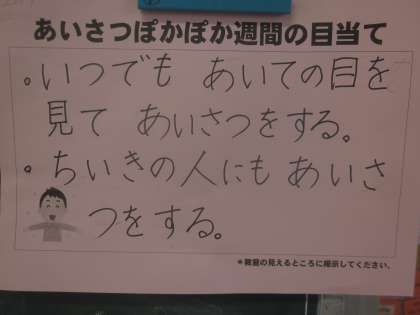 あいさつぽかぽか週間の目当て
。いつでも あいての目を
見て あいさつをする。
。ちいきの人にも あいさ
つをする。
＊教室の見えるところに掲示してください。